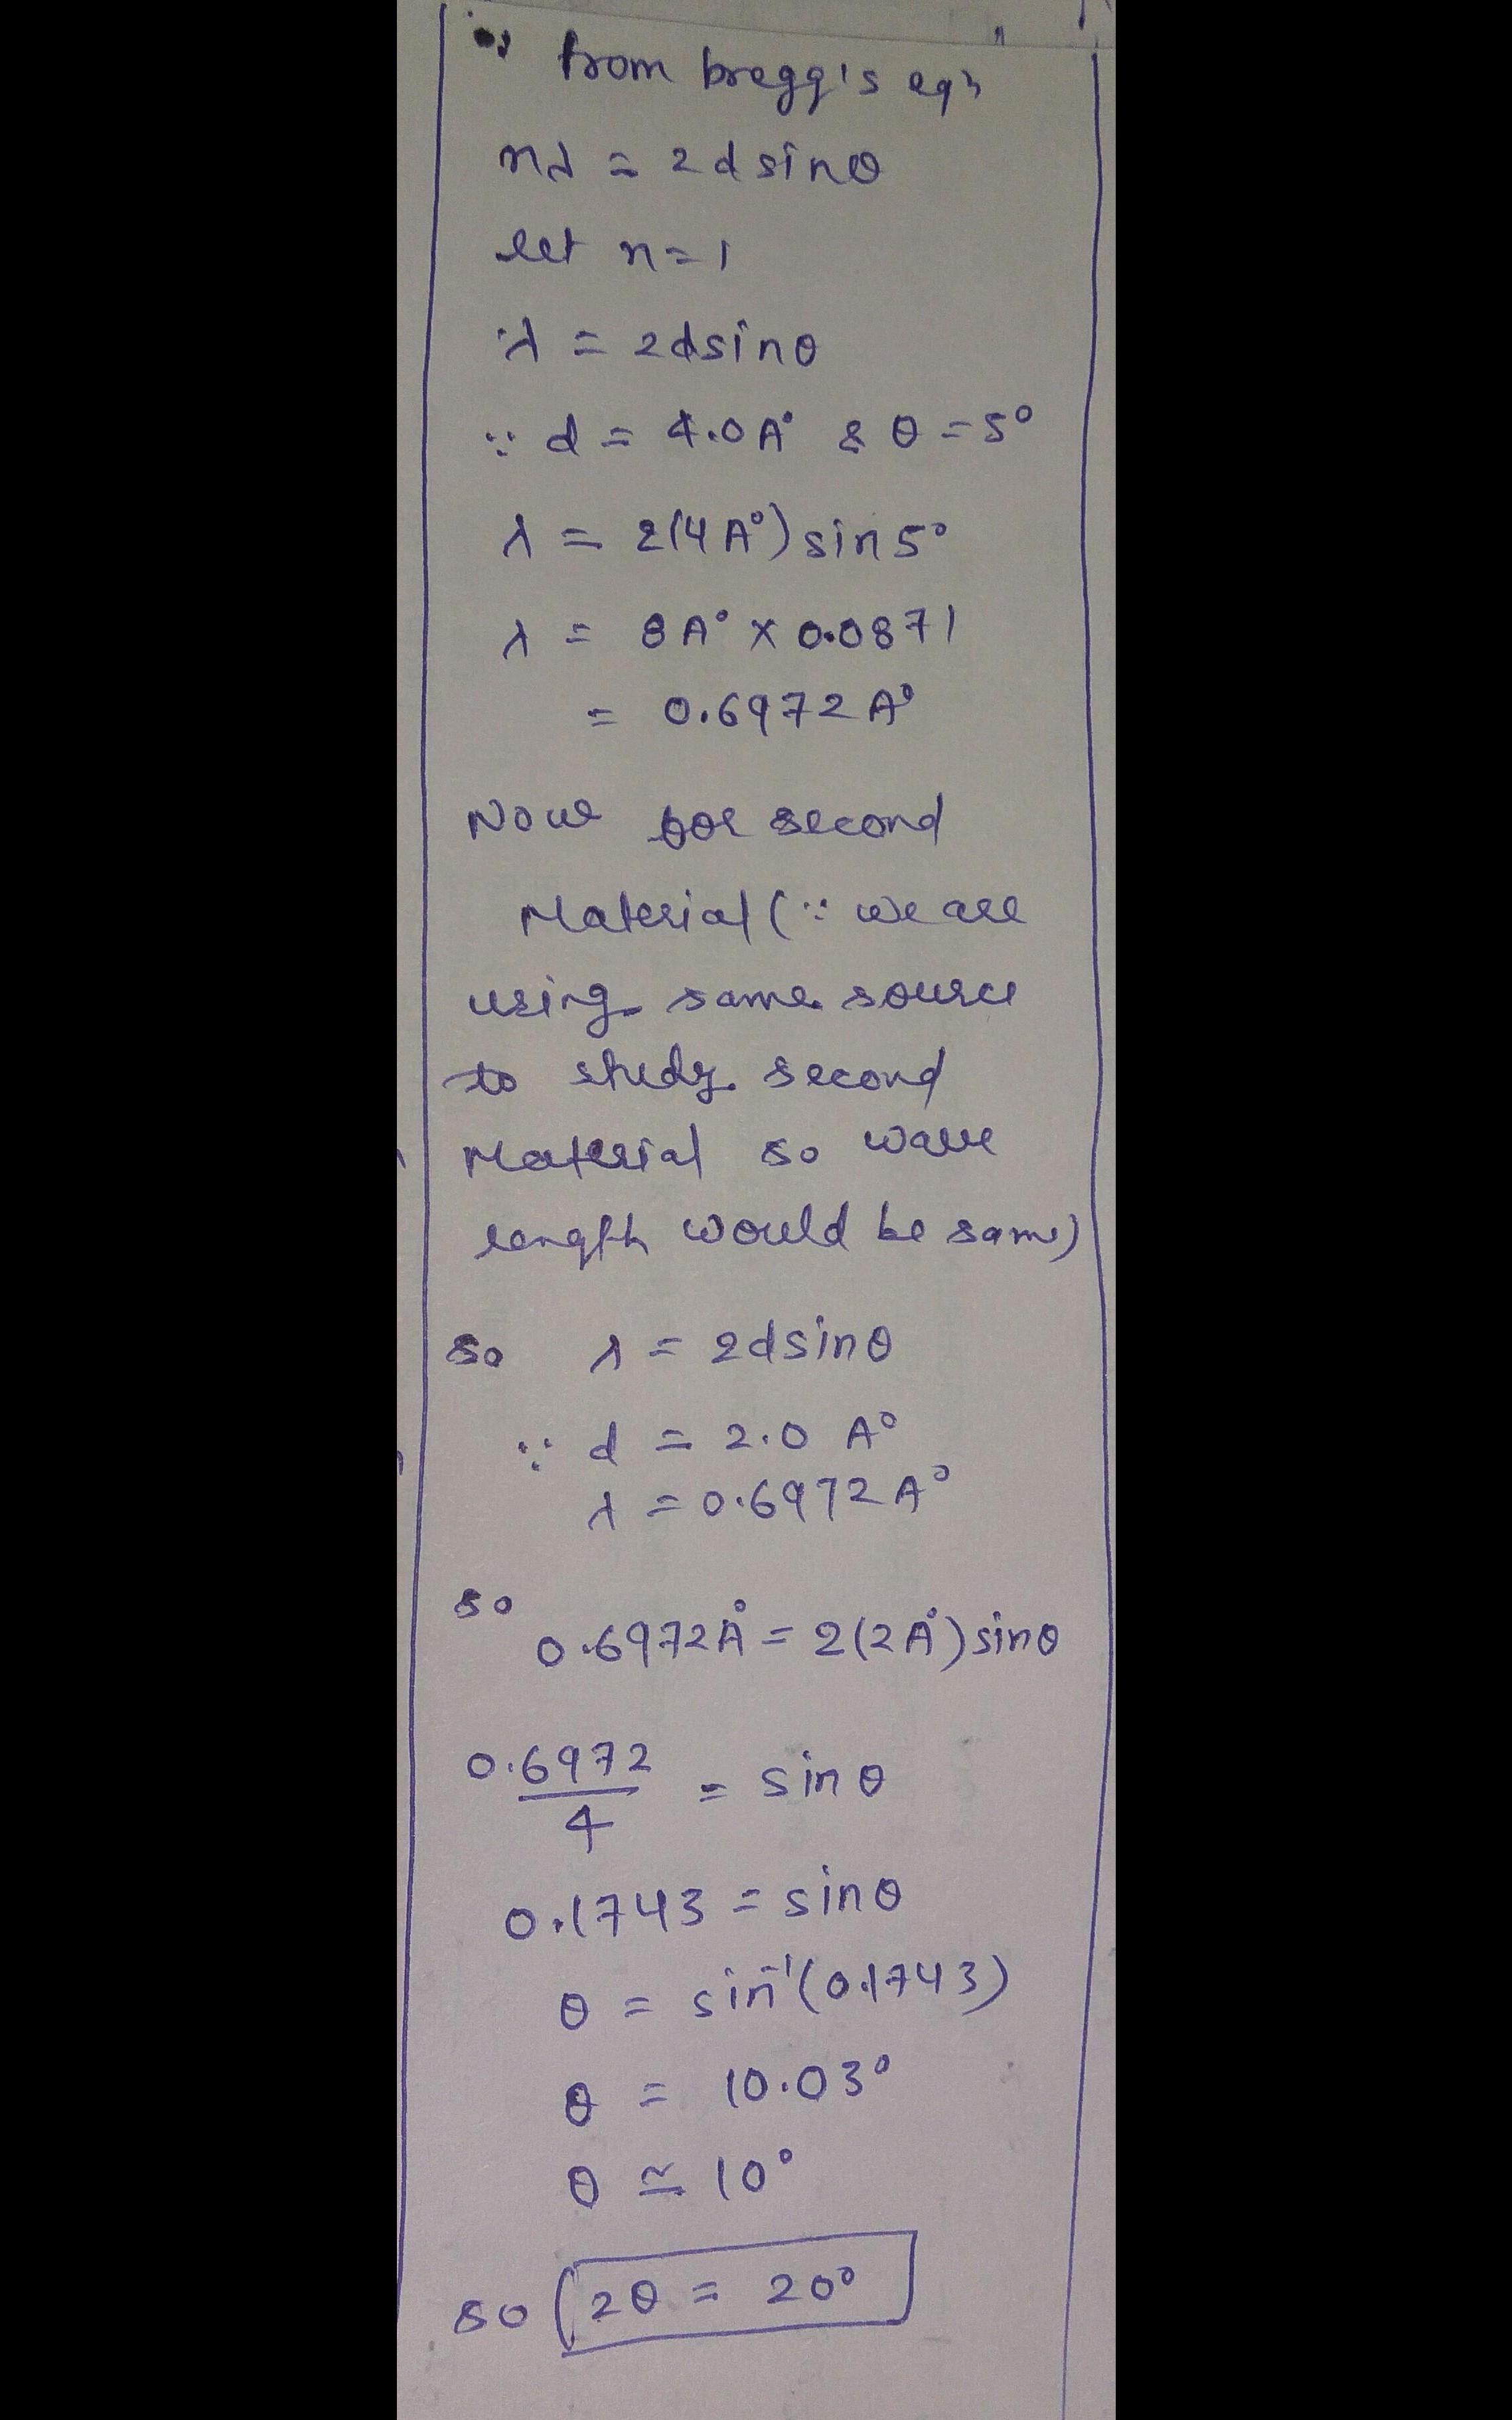 ∵ from bregg's eqn
nλ = 2dsinθ
let n=1
∴λ = 2dsinθ
∵ d = 4.0A° & θ = 5°
λ = 2(4A°)sin5°
λ = 8A° x 0.0871
= 0.6972A°
Now for second
Material (∵ we are
using same source
to study second
Material so wave
length would be same)
so λ = 2dsinθ
∵ d = 2.0 A°
λ = 0.6972A°
so
0.6972Å = 2(2Å)sinθ
0.6972/4 = sinθ
0.1743 = sinθ
θ = sin⁻¹(0.1743)
θ = 10.03°
θ ≃ 10°
so 2θ = 20°